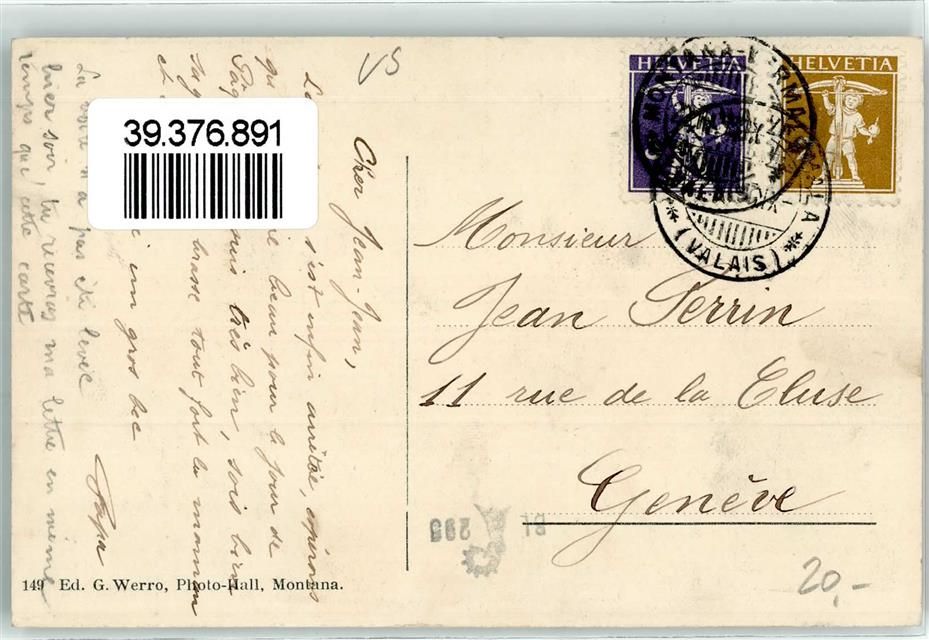 39.376.891
VS
HELVETIA
HELVETIA
MONTANA-VERMALA
(VALAIS)
Cher Jean-Jean,
s'est enfin arrêtée, espérons
beau pour le jour de
très bien, sois bien
tout fort ta maman
un gros bec
Papa
La voie n'a pas été levée
hier soir, tu recevras ma lettre en même
temps que cette carte
Monsieur
Jean Perrin
11 rue de la Cluse
Genève
295
20,-
149 Ed. G. Werro, Photo-Hall, Montana.